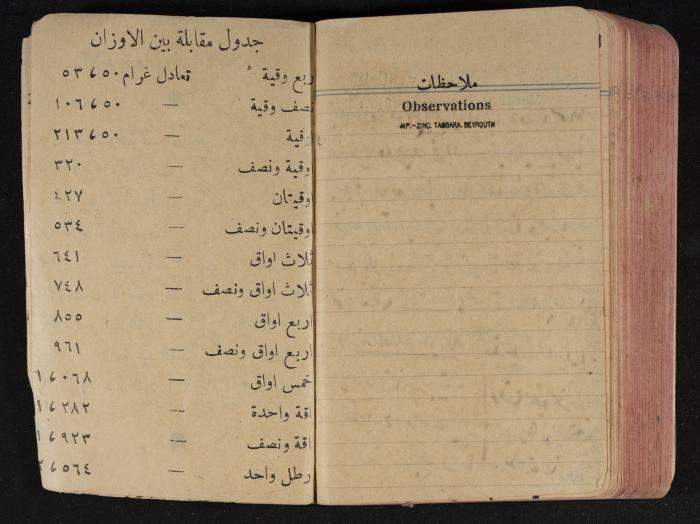 جدول مقابلة بين الاوزان
ربع وقية تعادل غرام ٥٣٤٥٠
نصف وقية — ١٠٦٤٥٠
وقية — ٢١٣٤٥٠
وقية ونصف — ٣٢٠
اوقيتان — ٤٢٧
اوقيتان ونصف — ٥٣٤
ثلاث اواق — ٦٤١
ثلاث اواق ونصف — ٧٤٨
اربع اواق — ٨٥٥
اربع اواق ونصف — ٩٦١
خمس اواق — ١٤٠٦٨
اقة واحدة — ١٤٢٨٢
اقة ونصف — ١٤٩٢٣
رطل واحد — ٢٤٥٦٤
ملاحظات
Observations
IMP.-ZINC. TABBARA. BEYROUTH